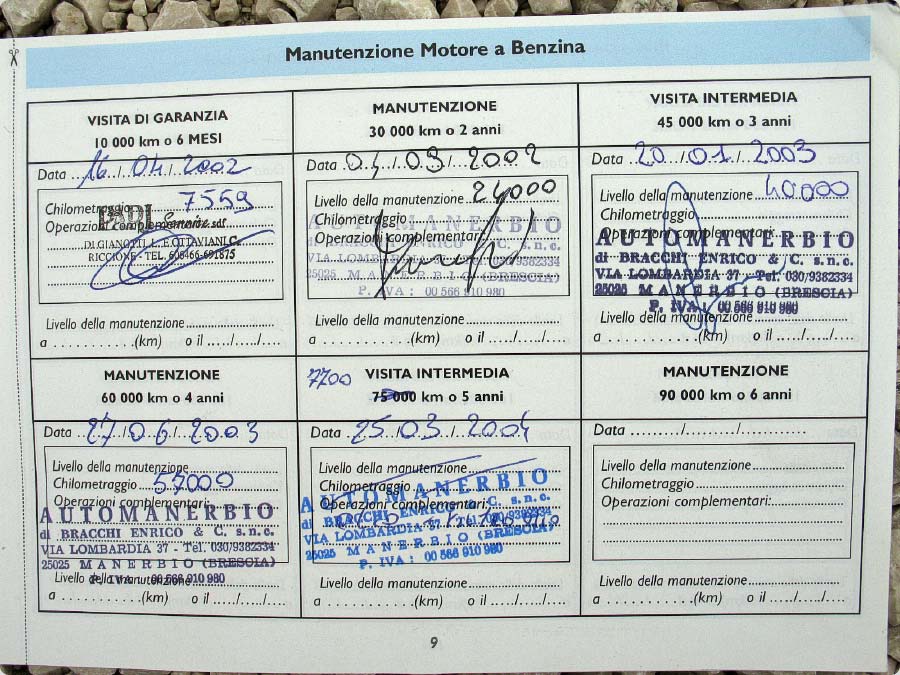 Manutenzione Motore a Benzina
VISITA DI GARANZIA
10 000 km o 6 MESI
Data 16/04/2002
Chilometraggio 7559
Operazioni complementari:
DI GIANOTTI L. E OTTAVIANI C.
RICCIONE - TEL.
Livello della manutenzione
a (km) o il ..../..../....
MANUTENZIONE
30 000 km o 2 anni
Data 04/09/2002
Livello della manutenzione 24000
Chilometraggio
Operazioni complementari:
AUTOMANERBIO
di BRACCHI ENRICO & C. s.n.c.
VIA LOMBARDIA 37 - Tel. 030/9382334
25025 MANERBIO (BRESCIA)
P. IVA: 00 566 910 980
Livello della manutenzione
a (km) o il ..../..../....
VISITA INTERMEDIA
45 000 km o 3 anni
Data 20/01/2003
Livello della manutenzione 40000
Chilometraggio
Operazioni complementari:
AUTOMANERBIO
di BRACCHI ENRICO & C. s.n.c.
VIA LOMBARDIA 37 - Tel. 030/9382334
25025 MANERBIO (BRESCIA)
P. IVA: 00 566 910 980
Livello della manutenzione
a (km) o il ..../..../....
MANUTENZIONE
60 000 km o 4 anni
Data 27/06/2003
Livello della manutenzione
Chilometraggio 57000
Operazioni complementari:
AUTOMANERBIO
di BRACCHI ENRICO & C. s.n.c.
VIA LOMBARDIA 37 - Tel. 030/9382334
25025 MANERBIO (BRESCIA)
P. IVA 00 566 910 980
Livello della manutenzione
a (km) o il ..../..../....
7700 VISITA INTERMEDIA
75 000 km o 5 anni
Data 25/03/2004
Livello della manutenzione
Chilometraggio
Operazioni complementari:
AUTOMANERBIO
di BRACCHI ENRICO & C. s.n.c.
VIA LOMBARDIA 37 - Tel. 030/9382334
25025 MANERBIO (BRESCIA)
P. IVA: 00 566 910 980
Livello della manutenzione
a (km) o il ..../..../....
MANUTENZIONE
90 000 km o 6 anni
Data ......./......./..........
Livello della manutenzione
Chilometraggio
Operazioni complementari:
Livello della manutenzione
a (km) o il ..../..../....
9